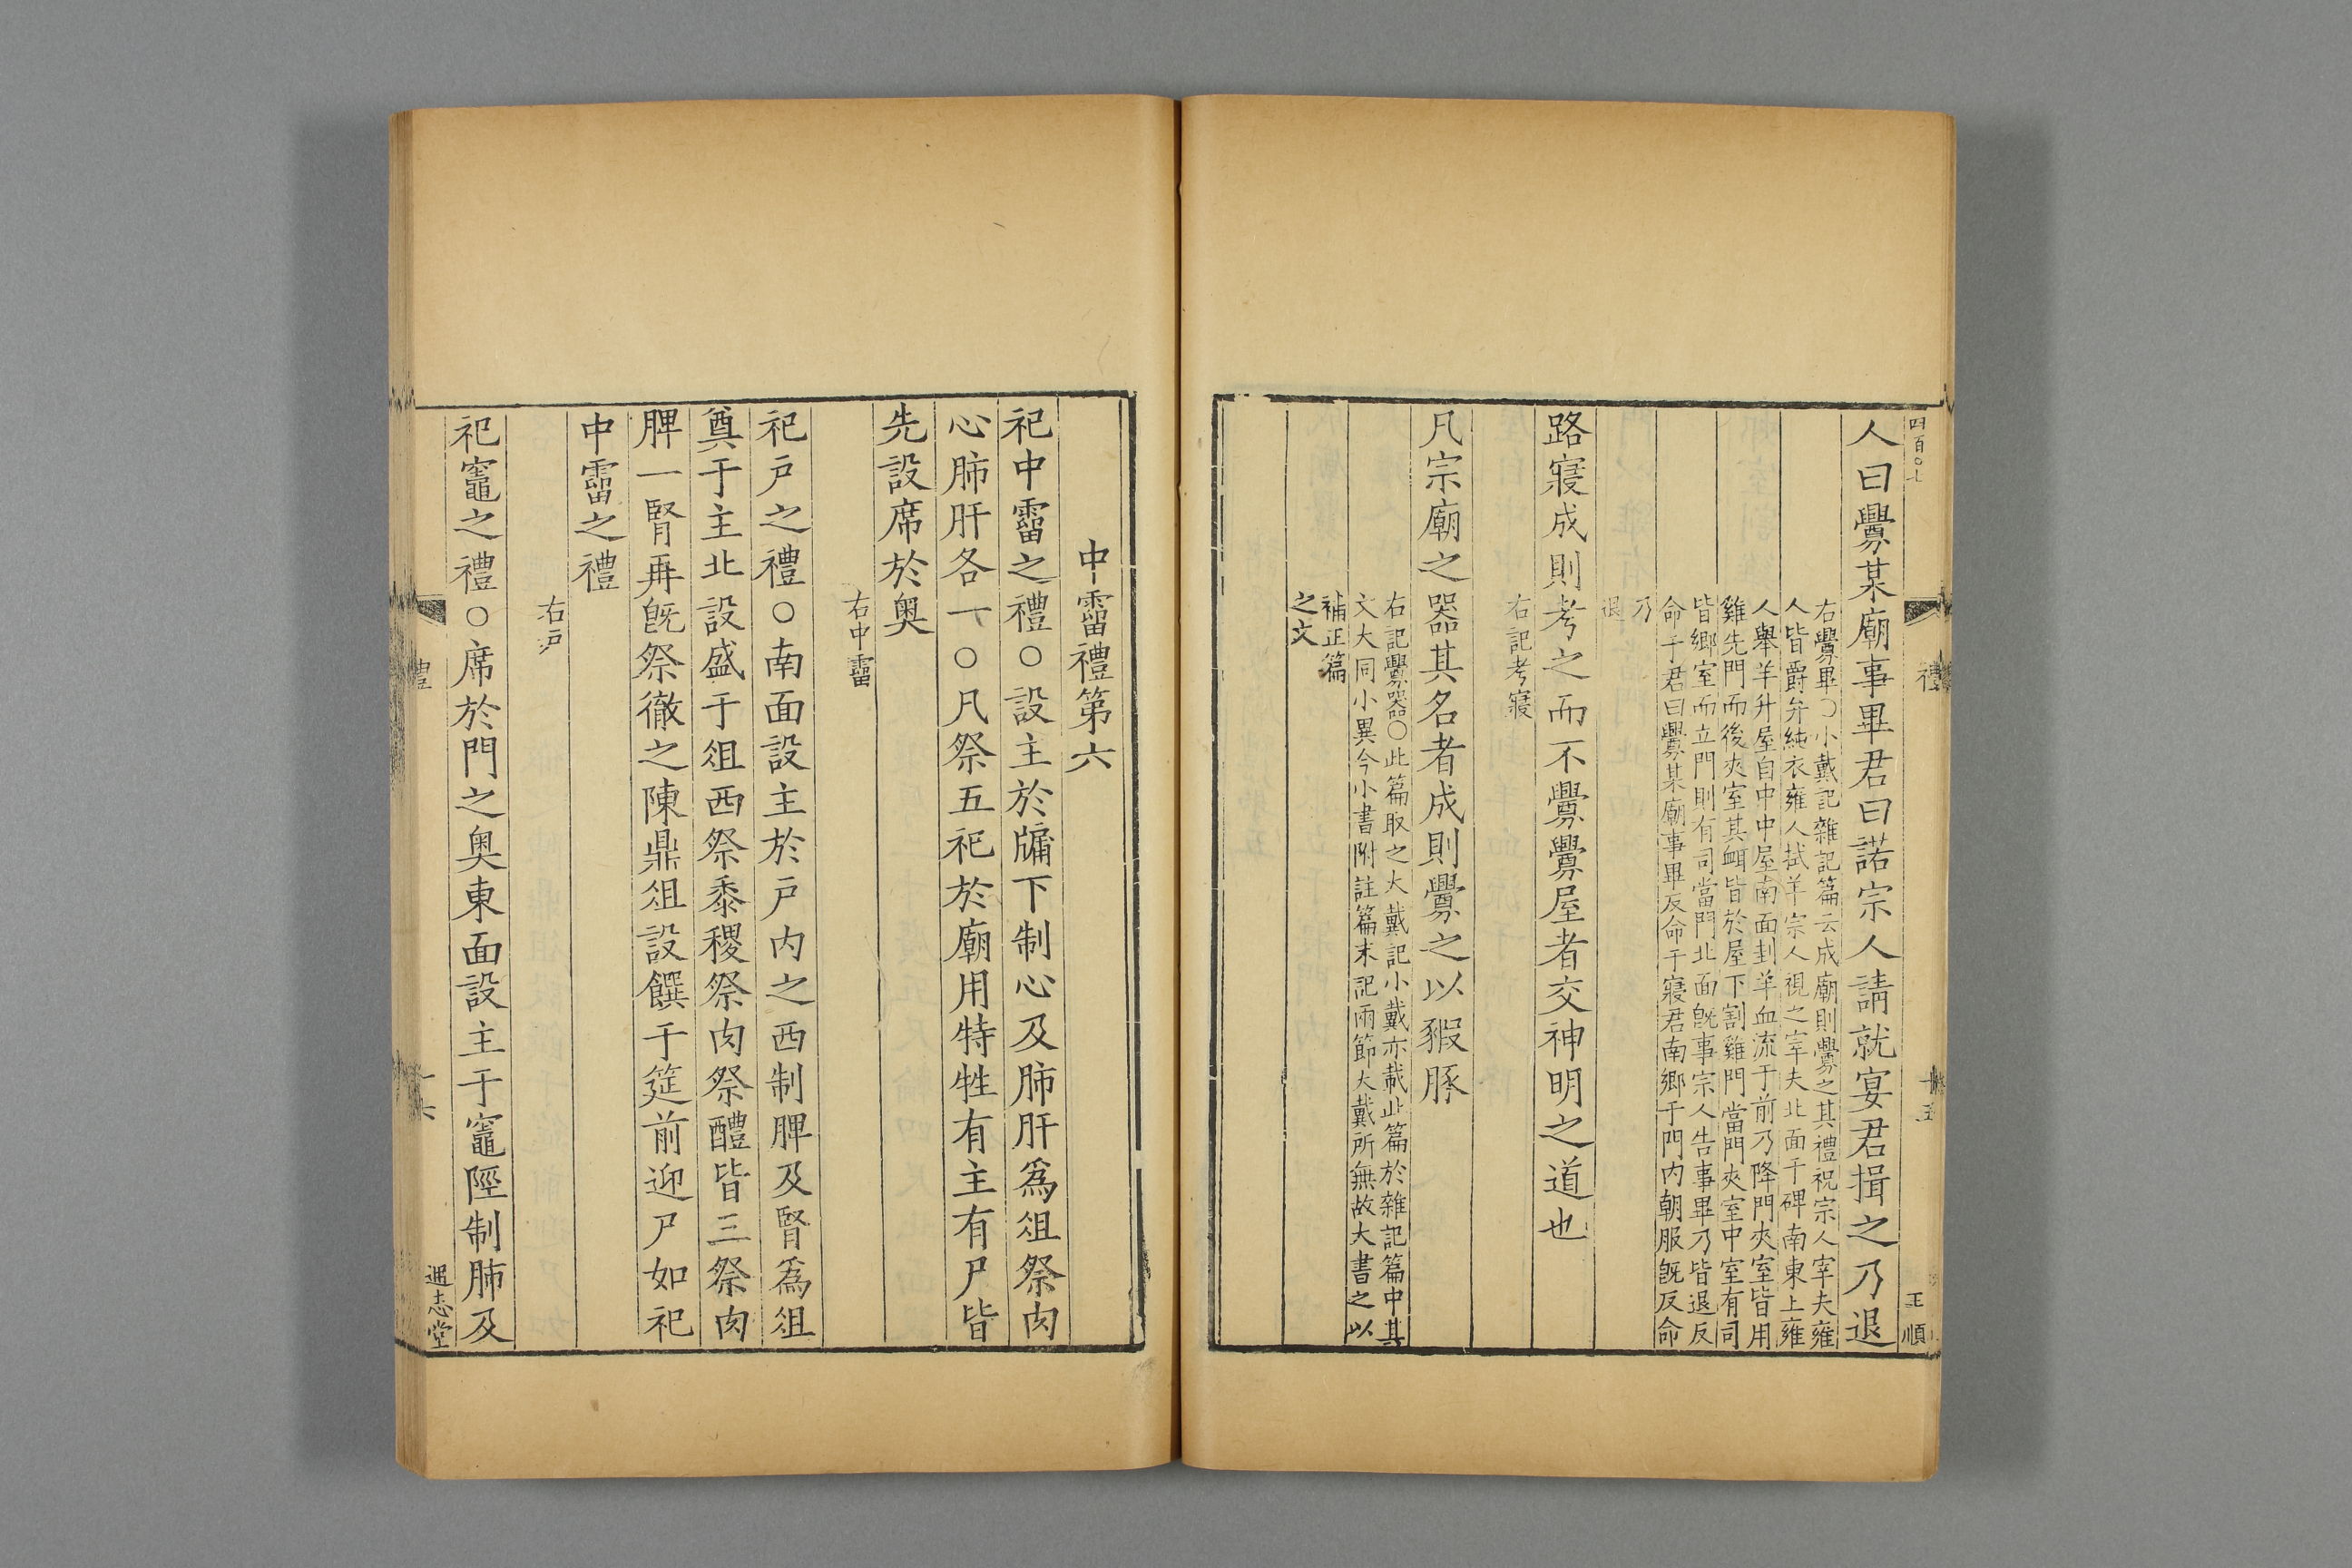 四百〇七
禮
十五
王順
人曰釁某廟事畢君曰諾宗人請就宴君揖之乃退
右釁畢〇小戴記雜記篇云成廟則釁之其禮祝宗人宰夫雍
人皆爵弁純衣雍人拭羊宗人視之宰夫北面于碑南東上雍
人舉羊升屋自中中屋南面刲羊血流于前乃降門夾室皆用
雞先門而後夾室其衈皆於屋下割雞門當門夾室中室有司
皆鄉室而立門則有司當門北面旣事宗人告事畢乃皆退反
命于君曰釁某廟事畢反命于寢君南鄉于門內朝服旣反命
乃
退
路寢成則考之而不釁釁屋者交神明之道也
右記考寢
凡宗廟之器其名者成則釁之以豭豚
右記釁器〇此篇取之大戴記小戴亦載此篇於雜記篇中其
文大同小異今小書附註篇末記兩節大戴所無故大書之以
補正篇
之文
中霤禮第六
祀中霤之禮〇設主於牖下制心及肺肝爲俎祭肉
心肺肝各一〇凡祭五祀於廟用特牲有主有尸皆
先設席於奧
右中霤
祀戸之禮〇南面設主於戸内之西制脾及腎爲俎
奠于主北設盛于俎西祭黍稷祭肉祭醴皆三祭肉
脾一腎再旣祭徹之陳鼎俎設饌于筵前迎尸如祀
中霤之禮
右戸
祀竈之禮〇席於門之奧東面設主于竈陘制肺及
禮
十六
通志堂